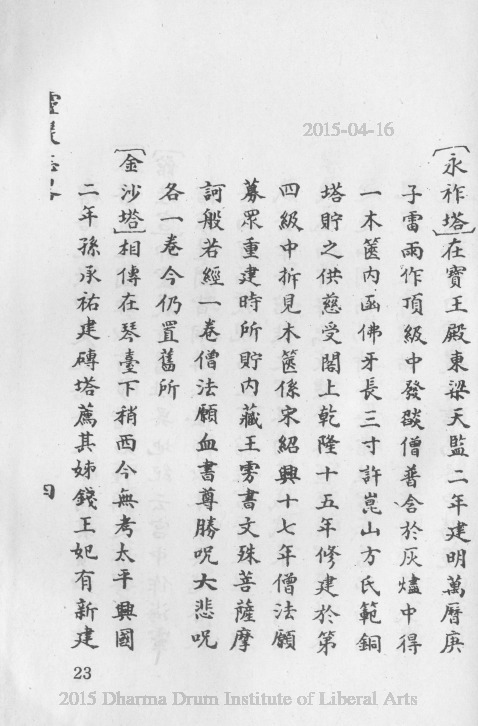 2015-04-16
[永祚塔]在寶王殿東梁天監二年建明萬曆庚
子雷雨作頂級中發燄僧普舍於灰燼中得
一木篋內函佛牙長三寸許崑山方氏範銅
塔貯之供慈受閣上乾隆十五年修建於第
四級中拆見木篋係宋紹興十七年僧法願
募眾重建時所貯內藏王雱書文殊菩薩摩
訶般若經一卷僧法願血書尊勝呪大悲呪
各一卷今仍置舊所
[金沙塔]相傳在琴臺下稍西今無考太平興國
二年孫承祐建磚塔薦其姊錢王妃有新建
23
2015 Dharma Drum Institute of Liberal Arts